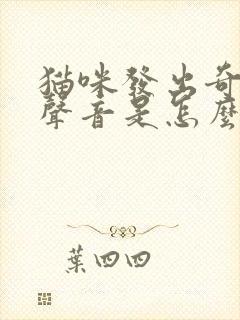 猫咪發出奇
聲音是怎麼
葉四四